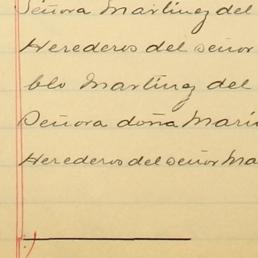 Señora Martinez del
Herederos del señor
blo Martinez del
Señora doña Mari
Herederos del señor Ma